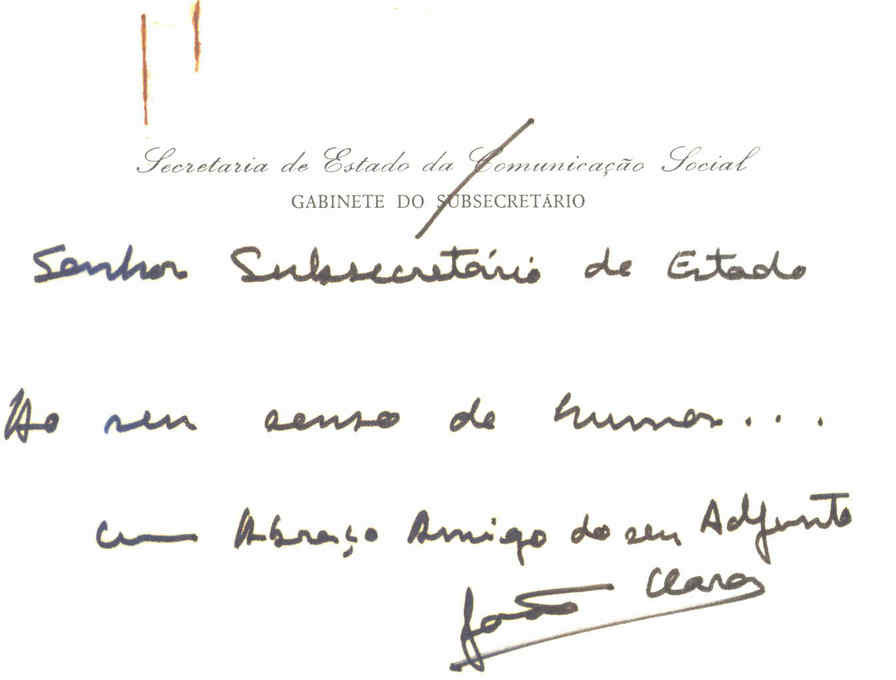 Secretaria de Estado da Comunicação Social
GABINETE DO SUBSECRETÁRIO
Senhor Subsecretário de Estado
Ao seu senso de humor...
um Abraço Amigo do seu Adjunto
João Clara